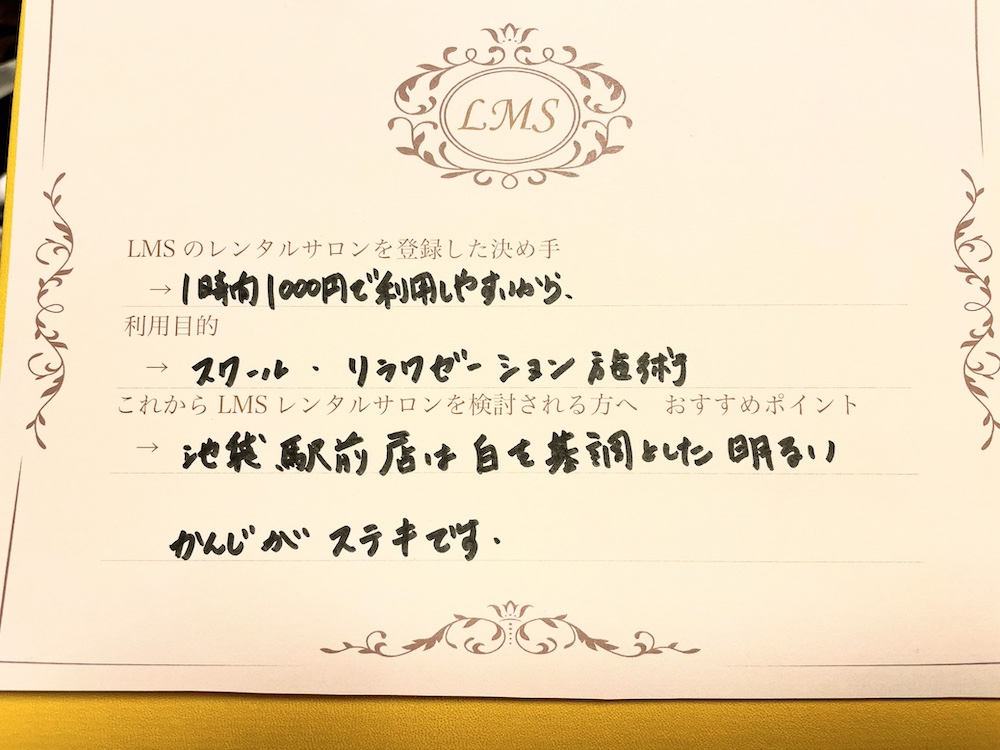 LMS
LMSのレンタルサロンを登録した決め手
→ 1時間1000円で利用しやすいから、
利用目的
→ スクール・リラクゼーション 施術
これからLMSレンタルサロンを検討される方へ　おすすめポイント
→ 池袋駅前店は白を基調とした明るい
かんじが ステキです.